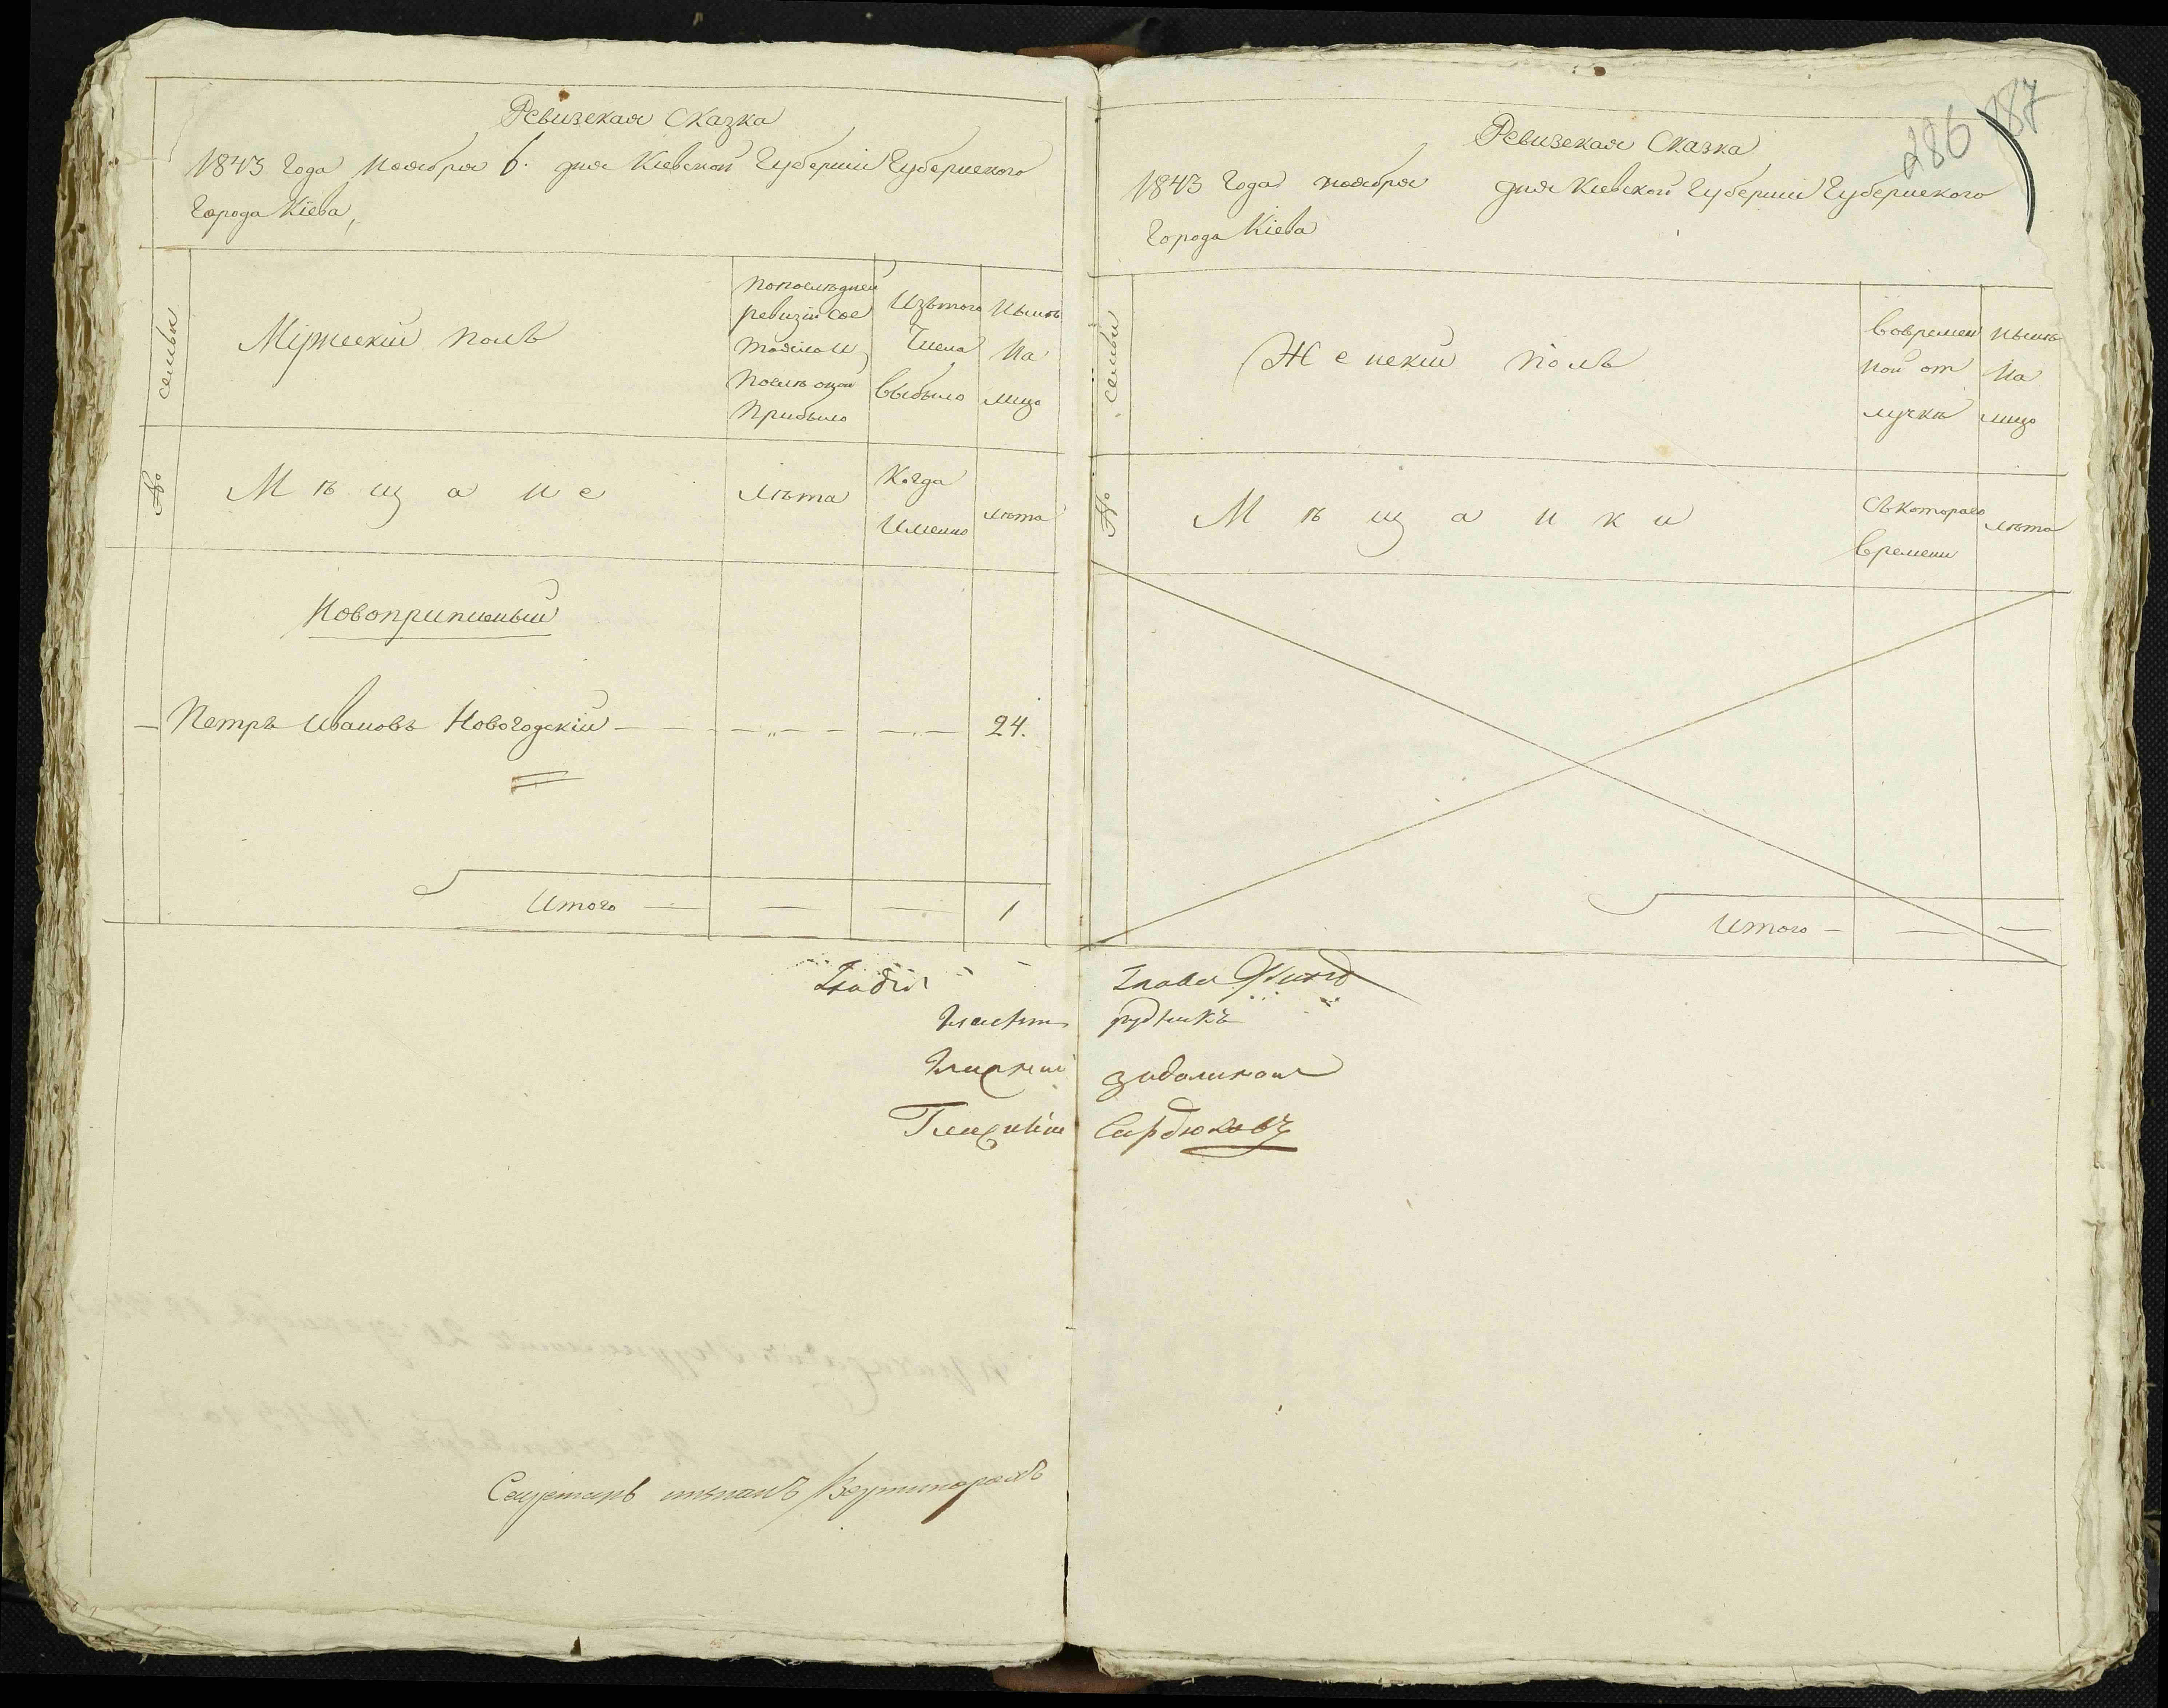 Ревизская Сказка
1843 года Ноября 6. дня Кіевской Губерніи Губернскаго
Города Кіева,
№ семьи
Мужескій полъ
По последней
ревизіи сос
тояло и
после оной
прибыло
Изътого
числа
выбыло
Ныне
на
лицо
Мѣщане
лѣта
Когда
имянно
лѣта
Новоприписный
Петръ Ивановъ Новогодскій
24.
Итого
1
286 187
Ревизская Сказка
1843 года ноября дня Кіевской Губерніи Губернского
Города Кіева
№ семьи
Женскій полъ
Вовремен
ной от
лучкѣ
Нынѣ
на
лицо
Мѣщанки
Съкотораго
времени
лѣта
Итого
Глава
Рудникъ
Гласный
Сердюковъ